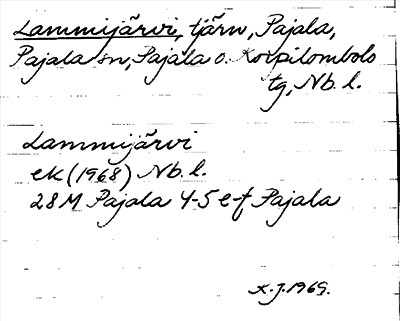 Lammijärvi, tjärn, Pajala,
Pajala sn, Pajala o. Korpilombolo
tg, Nb. l.
Lammijärvi
ek (1968) Nb. l.
28M Pajala 4-5 e-f Pajala
K. J. 1969.